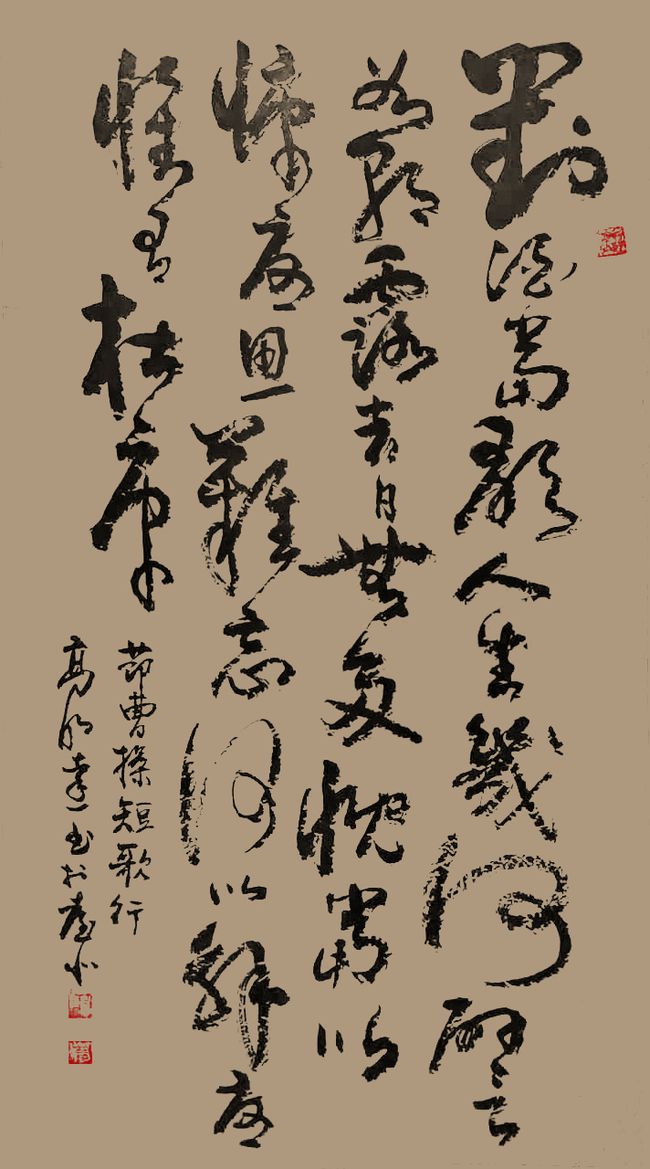 對酒當歌人生幾何譬
如朝露去日無多慨當以
慷憂思難忘何以解憂
惟有杜康
節曹操短歌行
高明達書於臺北